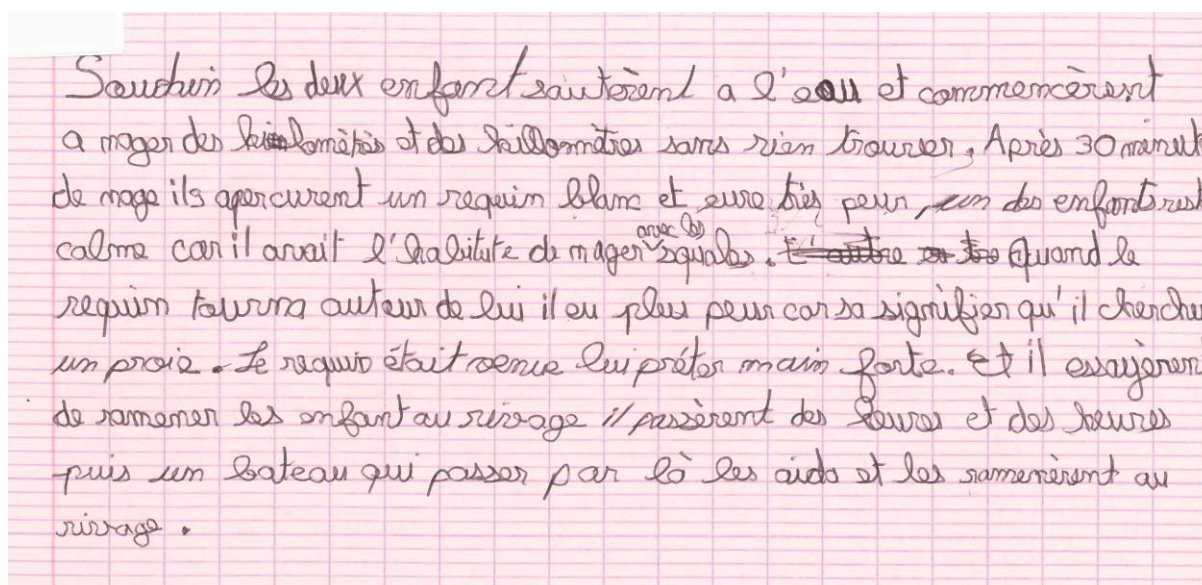 Soudain les deux enfant sautèrent a l'eau et commencèrent
a nager des kilomètres et des killomètres sans rien trouver. Après 30 minut
de nage ils apercurent un requin blanc et eure très peur, un des enfants rest
calme car il avait l'habitute de nager avec les squales. Quand le
requin tourna auteur de lui il eu plus peur car sa signifier qu'il cherchai
un proie. Le requin était venue lui prêter main forte. Et il essayèrent
de ramener les enfant au rivage il passèrent des heures et des heures
puis un bateau qui passer par là les aida et les ramenèrent au
rivage.